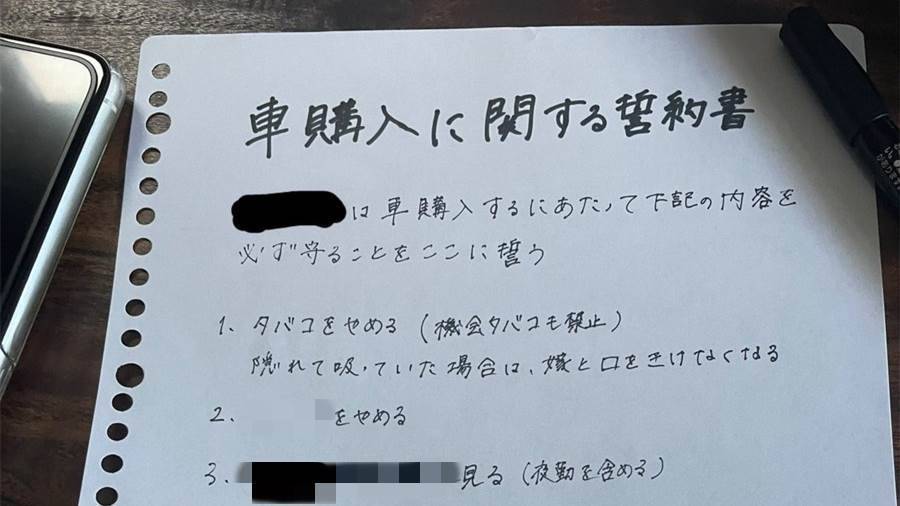 車購入に関する誓約書
は車購入するにあたって下記の内容を
必ず守ることをここに誓う
1. タバコをやめる (機会タバコも禁止)
隠れて吸っていた場合は、嫁と口をきけなくなる
2. をやめる
3. 見る (夜勤を含める)